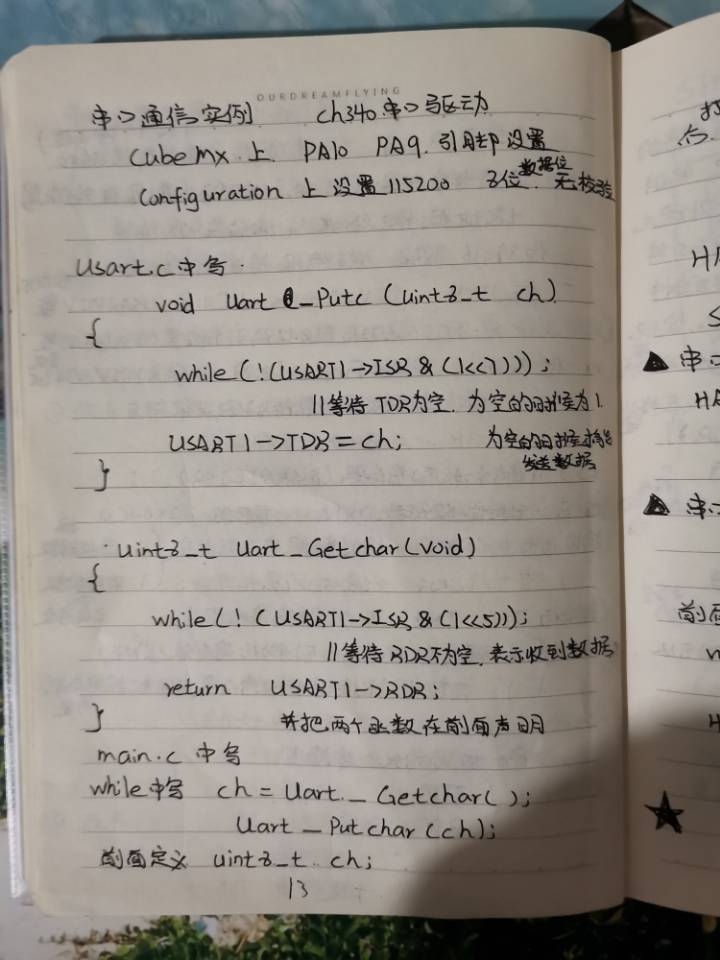 OURDREAMFLYING
串口通信实例 ch340串口驱动
CubeMX上 PA10 PA9. 引脚设置
Configuration 上设置115200 8位数据位. 无校验
Usart.c中写.
void Uart_Putc (uint8_t ch)
{
while(!(USART1->ISR & (1<<7)));
//等待TDR为空. 为空的时候为1.
USART1->TDR = ch; 为空的时候
发送数据
}
uint8_t Uart_Getchar(void)
{
while(! (USART1->ISR & (1<<5)));
//等待RDR不为空. 表示收到数据
return USART1->RDR;
} 并把两个函数在前面声明
main.c 中写
while中写 ch = Uart_Getchar();
Uart_Putchar(ch);
前面定义 uint8_t ch;
13
HA
▲ 串口
HA
▲ 串口
前面
★